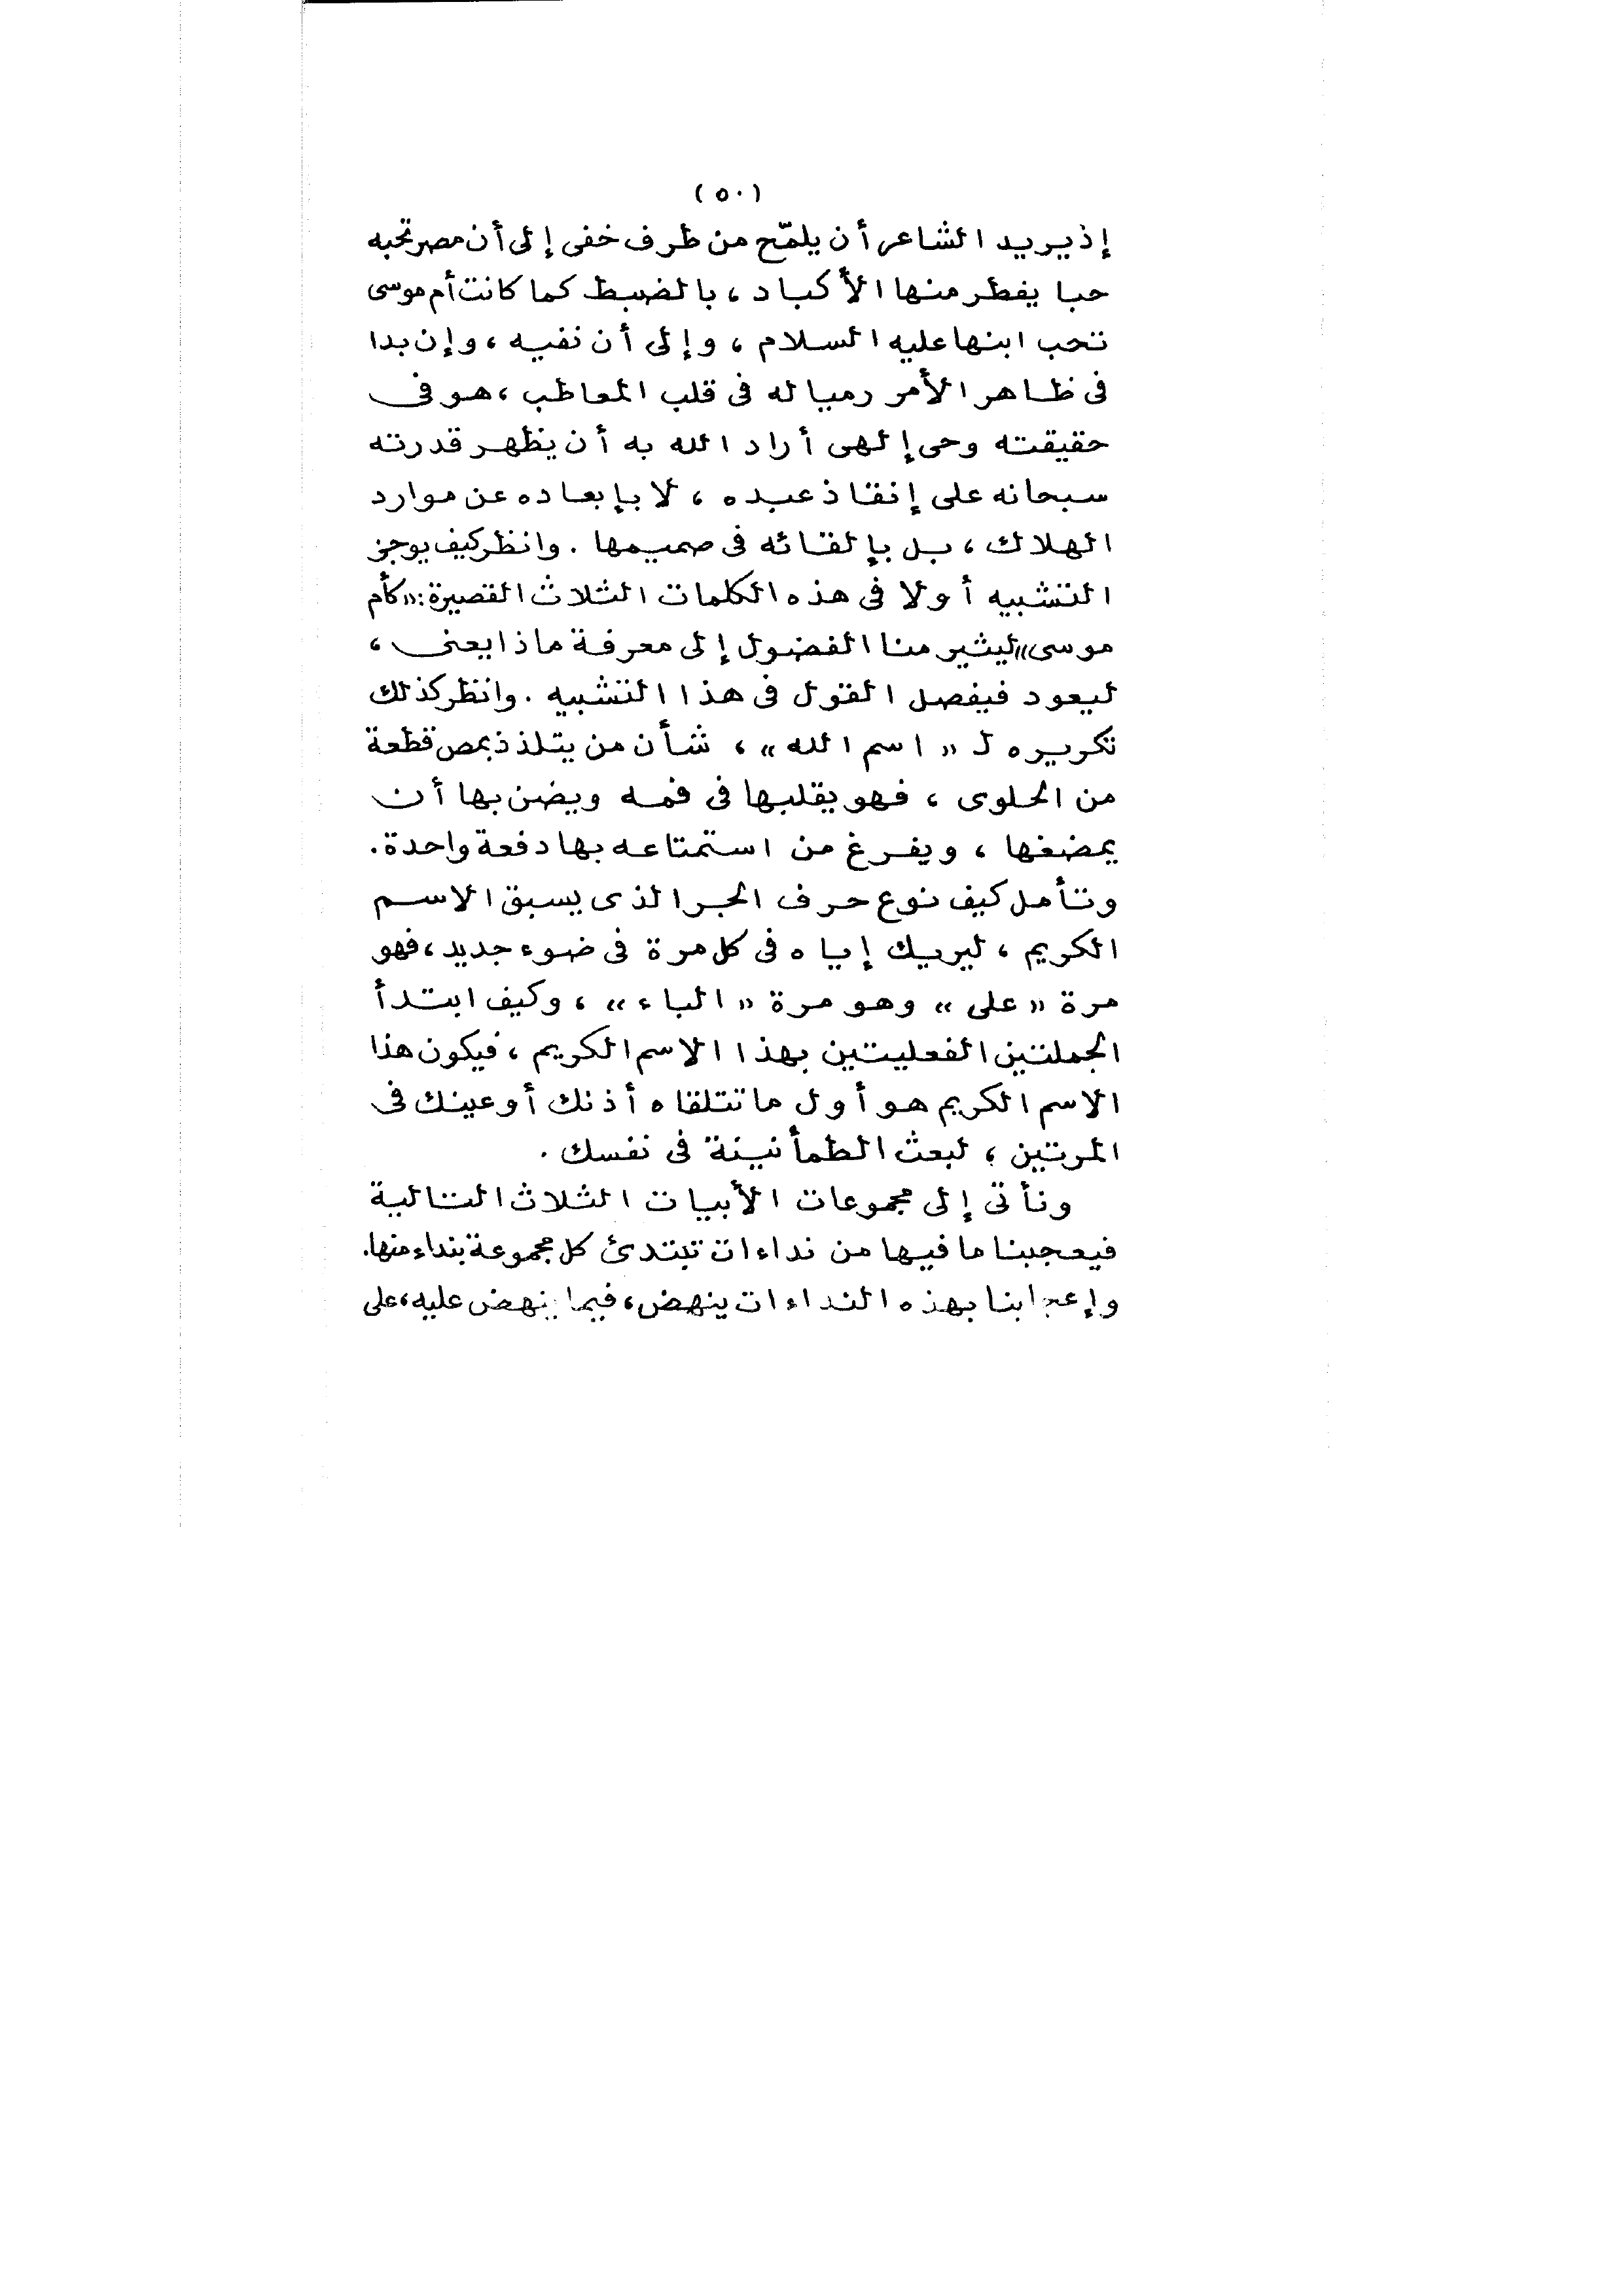 (٥٠)
إذ يريد الشاعر أن يلمّح من طرف خفى إلى أن مصر تحبه
حبا يفطر منها الأكباد ، بالضبط كما كانت أم موسى
تحب ابنها عليه السلام ، وإلى أن نفيه ، وإن بدا
فى ظاهر الأمر رميا له فى قلب المعاطب ، هو فى
حقيقته وحى إلهى أراد الله به أن يظهر قدرته
سبحانه على إنقاذ عبده ، لا بإبعاده عن موارد
الهلاك ، بل بإلقائه فى صميمها . وانظر كيف يوجز
التشبيه أولا فى هذه الكلمات الثلاث القصيرة : «كأم
موسى» ليثير منا الفضول إلى معرفة ماذا يعنى ،
ليعود فيفصل القول فى هذا التشبيه . وانظر كذلك
تكريره لـ «اسم الله» ، شأن من يتلذذ بمص قطعة
من الحلوى ، فهو يقلبها فى فمه ويضن بها أن
يمضغها ، ويفرغ من استمتاعه بها دفعة واحدة .
وتأمل كيف نوع حرف الجر الذى يسبق الاسم
الكريم ، ليريك إياه فى كل مرة فى ضوء جديد ، فهو
مرة «على» وهو مرة «الباء» ، وكيف ابتدأ
الجملتين الفعليتين بهذا الاسم الكريم ، فيكون هذا
الاسم الكريم هو أول ما تتلقاه أذنك أو عينك فى
المرتين ، لبعث الطمأنينة فى نفسك .
ونأتى إلى مجموعات الأبيات الثلاث التالية
فيعجبنا ما فيها من نداءات تبتدئ كل مجموعة بنداء منها .
وإعجابنا بهذه النداءات ينهض ، فيما ينهض عليه ، على